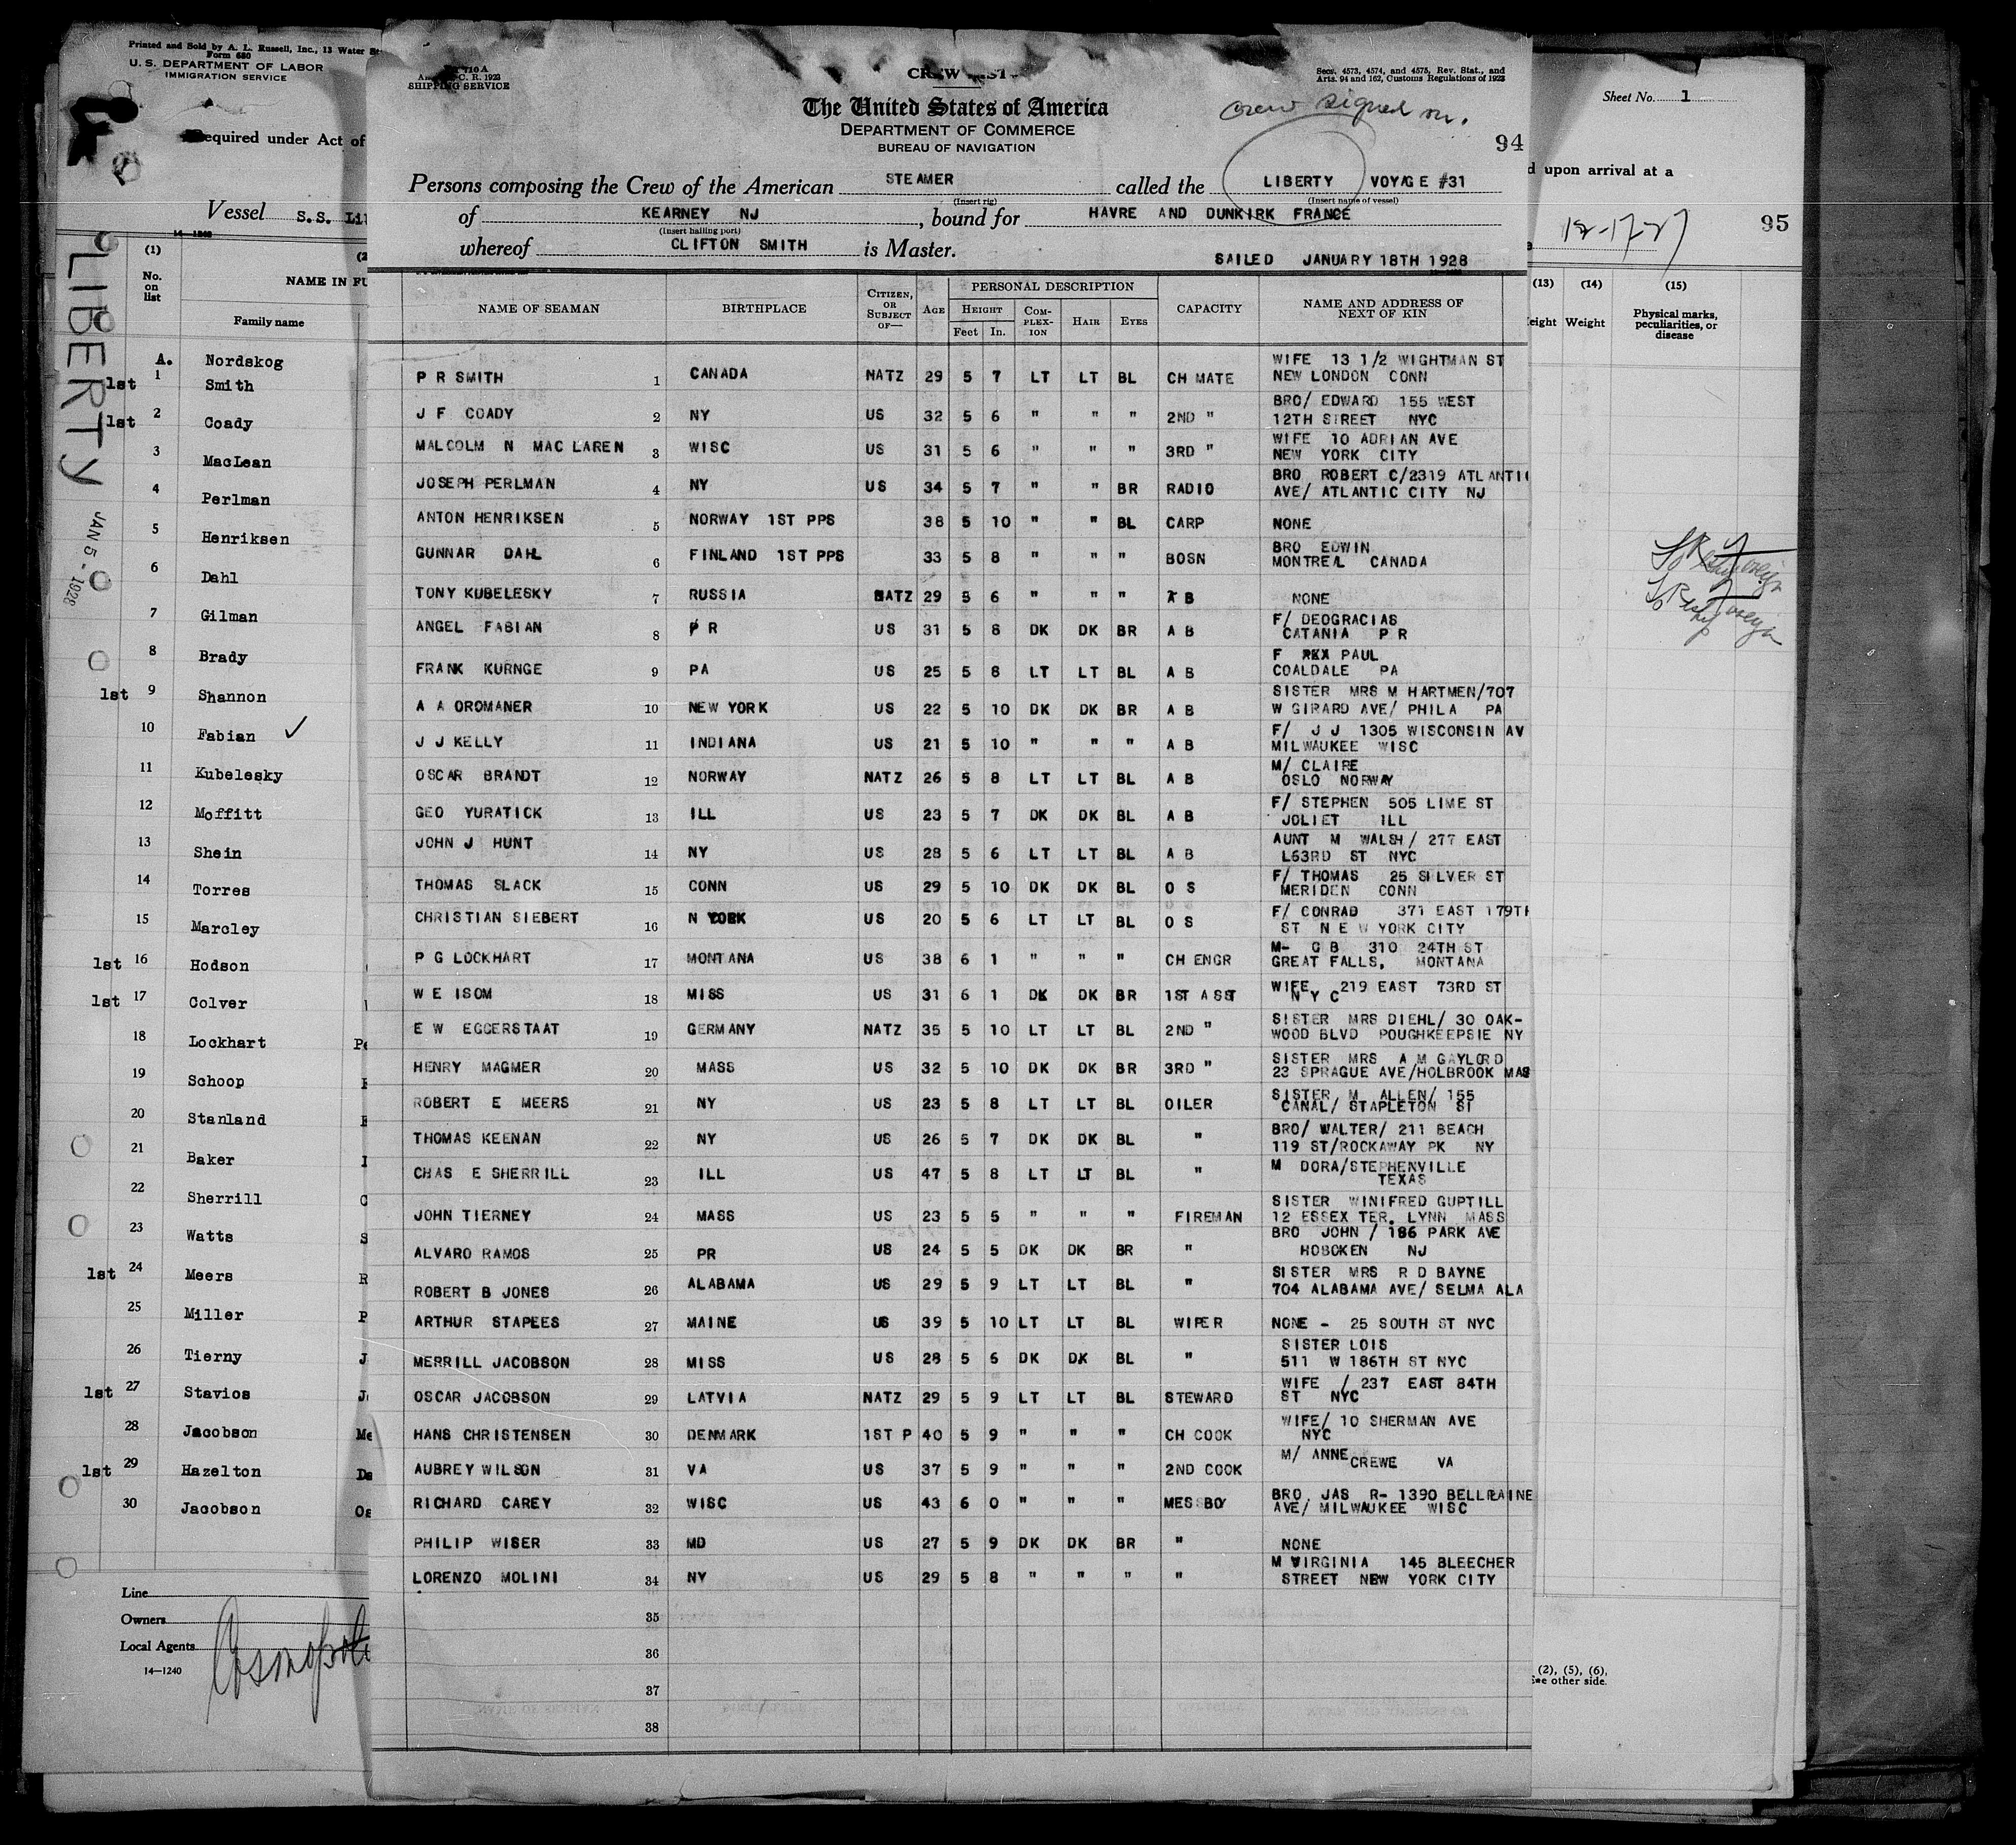 Printed and Sold by A. L. Russell, Inc., 13 Water
Form 680
U. S. DEPARTMENT OF LABOR
IMMIGRATION SERVICE
equired under Act of
Vessel S.S. Li
14—1240
LIBERTY
JAN 5 - 1928
(1)
No. on list
NAME IN FU
Family name
A. Nordskog
1st 1 Smith
1st 2 Coady
3 MacLean
4 Perlman
5 Henriksen
6 Dahl
7 Gilman
8 Brady
1st 9 Shannon
10 Fabian ✓
11 Kubelesky
12 Moffitt
13 Shein
14 Torres
15 Marcley
1st 16 Hodson
1st 17 Colver
18 Lockhart Pe
19 Schoop
20 Stanland
21 Baker
22 Sherrill C
23 Watts S
1st 24 Meers R
25 Miller P
26 Tierny J
1st 27 Stavios J
28 Jacobson Me
1st 29 Hazelton Da
30 Jacobson Os
Line
Owners
Local Agents
14—1240
C. R. 1923
SHIPPING SERVICE
CREW LIST
Secs. 4573, 4574, and 4575, Rev. Stat., and
Arts. 94 and 162, Customs Regulations of 1923
The United States of America
DEPARTMENT OF COMMERCE
BUREAU OF NAVIGATION
Crew signed on.
94
Persons composing the Crew of the American STEAMER called the LIBERTY VOYAGE #31
(Insert rig) (Insert name of vessel)
of KEARNEY NJ, bound for HAVRE AND DUNKIRK FRANCE
(Insert hailing port)
whereof CLIFTON SMITH is Master.
SAILED JANUARY 18TH 1928
NAME OF SEAMAN BIRTHPLACE CITIZEN, OR SUBJECT OF— AGE PERSONAL DESCRIPTION CAPACITY NAME AND ADDRESS OF NEXT OF KIN
HEIGHT COMPLEXION HAIR EYES
Feet In.
P R SMITH 1 CANADA NATZ 29 5 7 LT LT BL CH MATE WIFE 13 1/2 WIGHTMAN ST
NEW LONDON CONN
J F COADY 2 NY US 32 5 6 " " " 2ND " BRO/ EDWARD 155 WEST
12TH STREET NYC
MALCOLM N MAC LAREN 3 WISC US 31 5 6 " " " 3RD " WIFE 10 ADRIAN AVE
NEW YORK CITY
JOSEPH PERLMAN 4 NY US 34 5 7 " " BR RADIO BRO ROBERT C/2319 ATLANTIC
AVE/ ATLANTIC CITY NJ
ANTON HENRIKSEN 5 NORWAY 1ST PPS 38 5 10 " " BL CARP NONE
GUNNAR DAHL 6 FINLAND 1ST PPS 33 5 8 " " " BOSN BRO EDWIN
MONTREAL CANADA
TONY KUBELESKY 7 RUSSIA NATZ 29 5 6 " " " A B NONE
ANGEL FABIAN 8 P R US 31 5 8 DK DK BR A B F/ DEOGRACIAS
CATANIA P R
FRANK KURNGE 9 PA US 25 5 8 LT LT BL A B F PAUL
COALDALE PA
A A OROMANER 10 NEW YORK US 22 5 10 DK DK BR A B SISTER MRS M HARTMEN/707
W GIRARD AVE/ PHILA PA
J J KELLY 11 INDIANA US 21 5 10 " " " A B F/ J J 1305 WISCONSIN AV
MILWAUKEE WISC
OSCAR BRANDT 12 NORWAY NATZ 26 5 8 LT LT BL A B M/ CLAIRE
OSLO NORWAY
GEO YURATICK 13 ILL US 23 5 7 DK DK BL A B F/ STEPHEN 505 LIME ST
JOLIET ILL
JOHN J HUNT 14 NY US 28 5 6 LT LT BL A B AUNT M WALSH/ 277 EAST
L53RD ST NYC
THOMAS SLACK 15 CONN US 29 5 10 DK DK BL O S F/ THOMAS 25 SILVER ST
MERIDEN CONN
CHRISTIAN SIEBERT 16 N YORK US 20 5 6 LT LT BL O S F/ CONRAD 371 EAST 179TH
ST NEW YORK CITY
P G LOCKHART 17 MONTANA US 38 6 1 " " " CH ENGR M- G B 310 24TH ST
GREAT FALLS, MONTANA
W E ISOM 18 MISS US 31 6 1 DK DK BR 1ST ASST WIFE 219 EAST 73RD ST
N Y C
E W EGGERSTAAT 19 GERMANY NATZ 35 5 10 LT LT BL 2ND " SISTER MRS DIEHL/ 30 OAK-
WOOD BLVD POUGHKEEPSIE NY
HENRY MAGMER 20 MASS US 32 5 10 DK DK BR 3RD " SISTER MRS A M GAYLORD
23 SPRAGUE AVE/HOLBROOK MAS
ROBERT E MEERS 21 NY US 23 5 8 LT LT BL OILER SISTER M ALLEN/ 155
CANAL/ STAPLETON SI
THOMAS KEENAN 22 NY US 26 5 7 DK DK BL " BRO/ WALTER/ 211 BEACH
119 ST/ROCKAWAY PK NY
CHAS E SHERRILL 23 ILL US 47 5 8 LT LT BL " M DORA/STEPHENVILLE
TEXAS
JOHN TIERNEY 24 MASS US 23 5 5 " " " FIREMAN SISTER WINIFRED GUPTILL
12 ESSEX TER. LYNN MASS
ALVARO RAMOS 25 PR US 24 5 5 DK DK BR " BRO JOHN / 186 PARK AVE
HOBOKEN NJ
ROBERT B JONES 26 ALABAMA US 29 5 9 LT LT BL " SISTER MRS R D BAYNE
704 ALABAMA AVE/ SELMA ALA
ARTHUR STAPLES 27 MAINE US 39 5 10 LT LT BL WIPER NONE - 25 SOUTH ST NYC
MERRILL JACOBSON 28 MISS US 28 5 6 DK DK BL " SISTER LOIS
511 W 186TH ST NYC
OSCAR JACOBSON 29 LATVIA NATZ 29 5 9 LT LT BL STEWARD WIFE / 237 EAST 84TH
ST NYC
HANS CHRISTENSEN 30 DENMARK 1ST P 40 5 9 " " " CH COOK WIFE/ 10 SHERMAN AVE
NYC
AUBREY WILSON 31 VA US 37 5 9 " " " 2ND COOK M/ ANNE
CREWE VA
RICHARD CAREY 32 WISC US 43 6 0 " " " MESSBOY BRO JAS R- 1390 BELLRAINE
AVE/ MILWAUKEE WISC
PHILIP WISER 33 MD US 27 5 9 DK DK BR " NONE
LORENZO MOLINI 34 NY US 29 5 8 " " " " M VIRGINIA 145 BLEECHER
STREET NEW YORK CITY
35
36
37
38
Sheet No. 1
d upon arrival at a
12-17-27
95
(13) (14) (15)
eight Weight Physical marks, peculiarities, or disease
(2), (5), (6),
See other side.